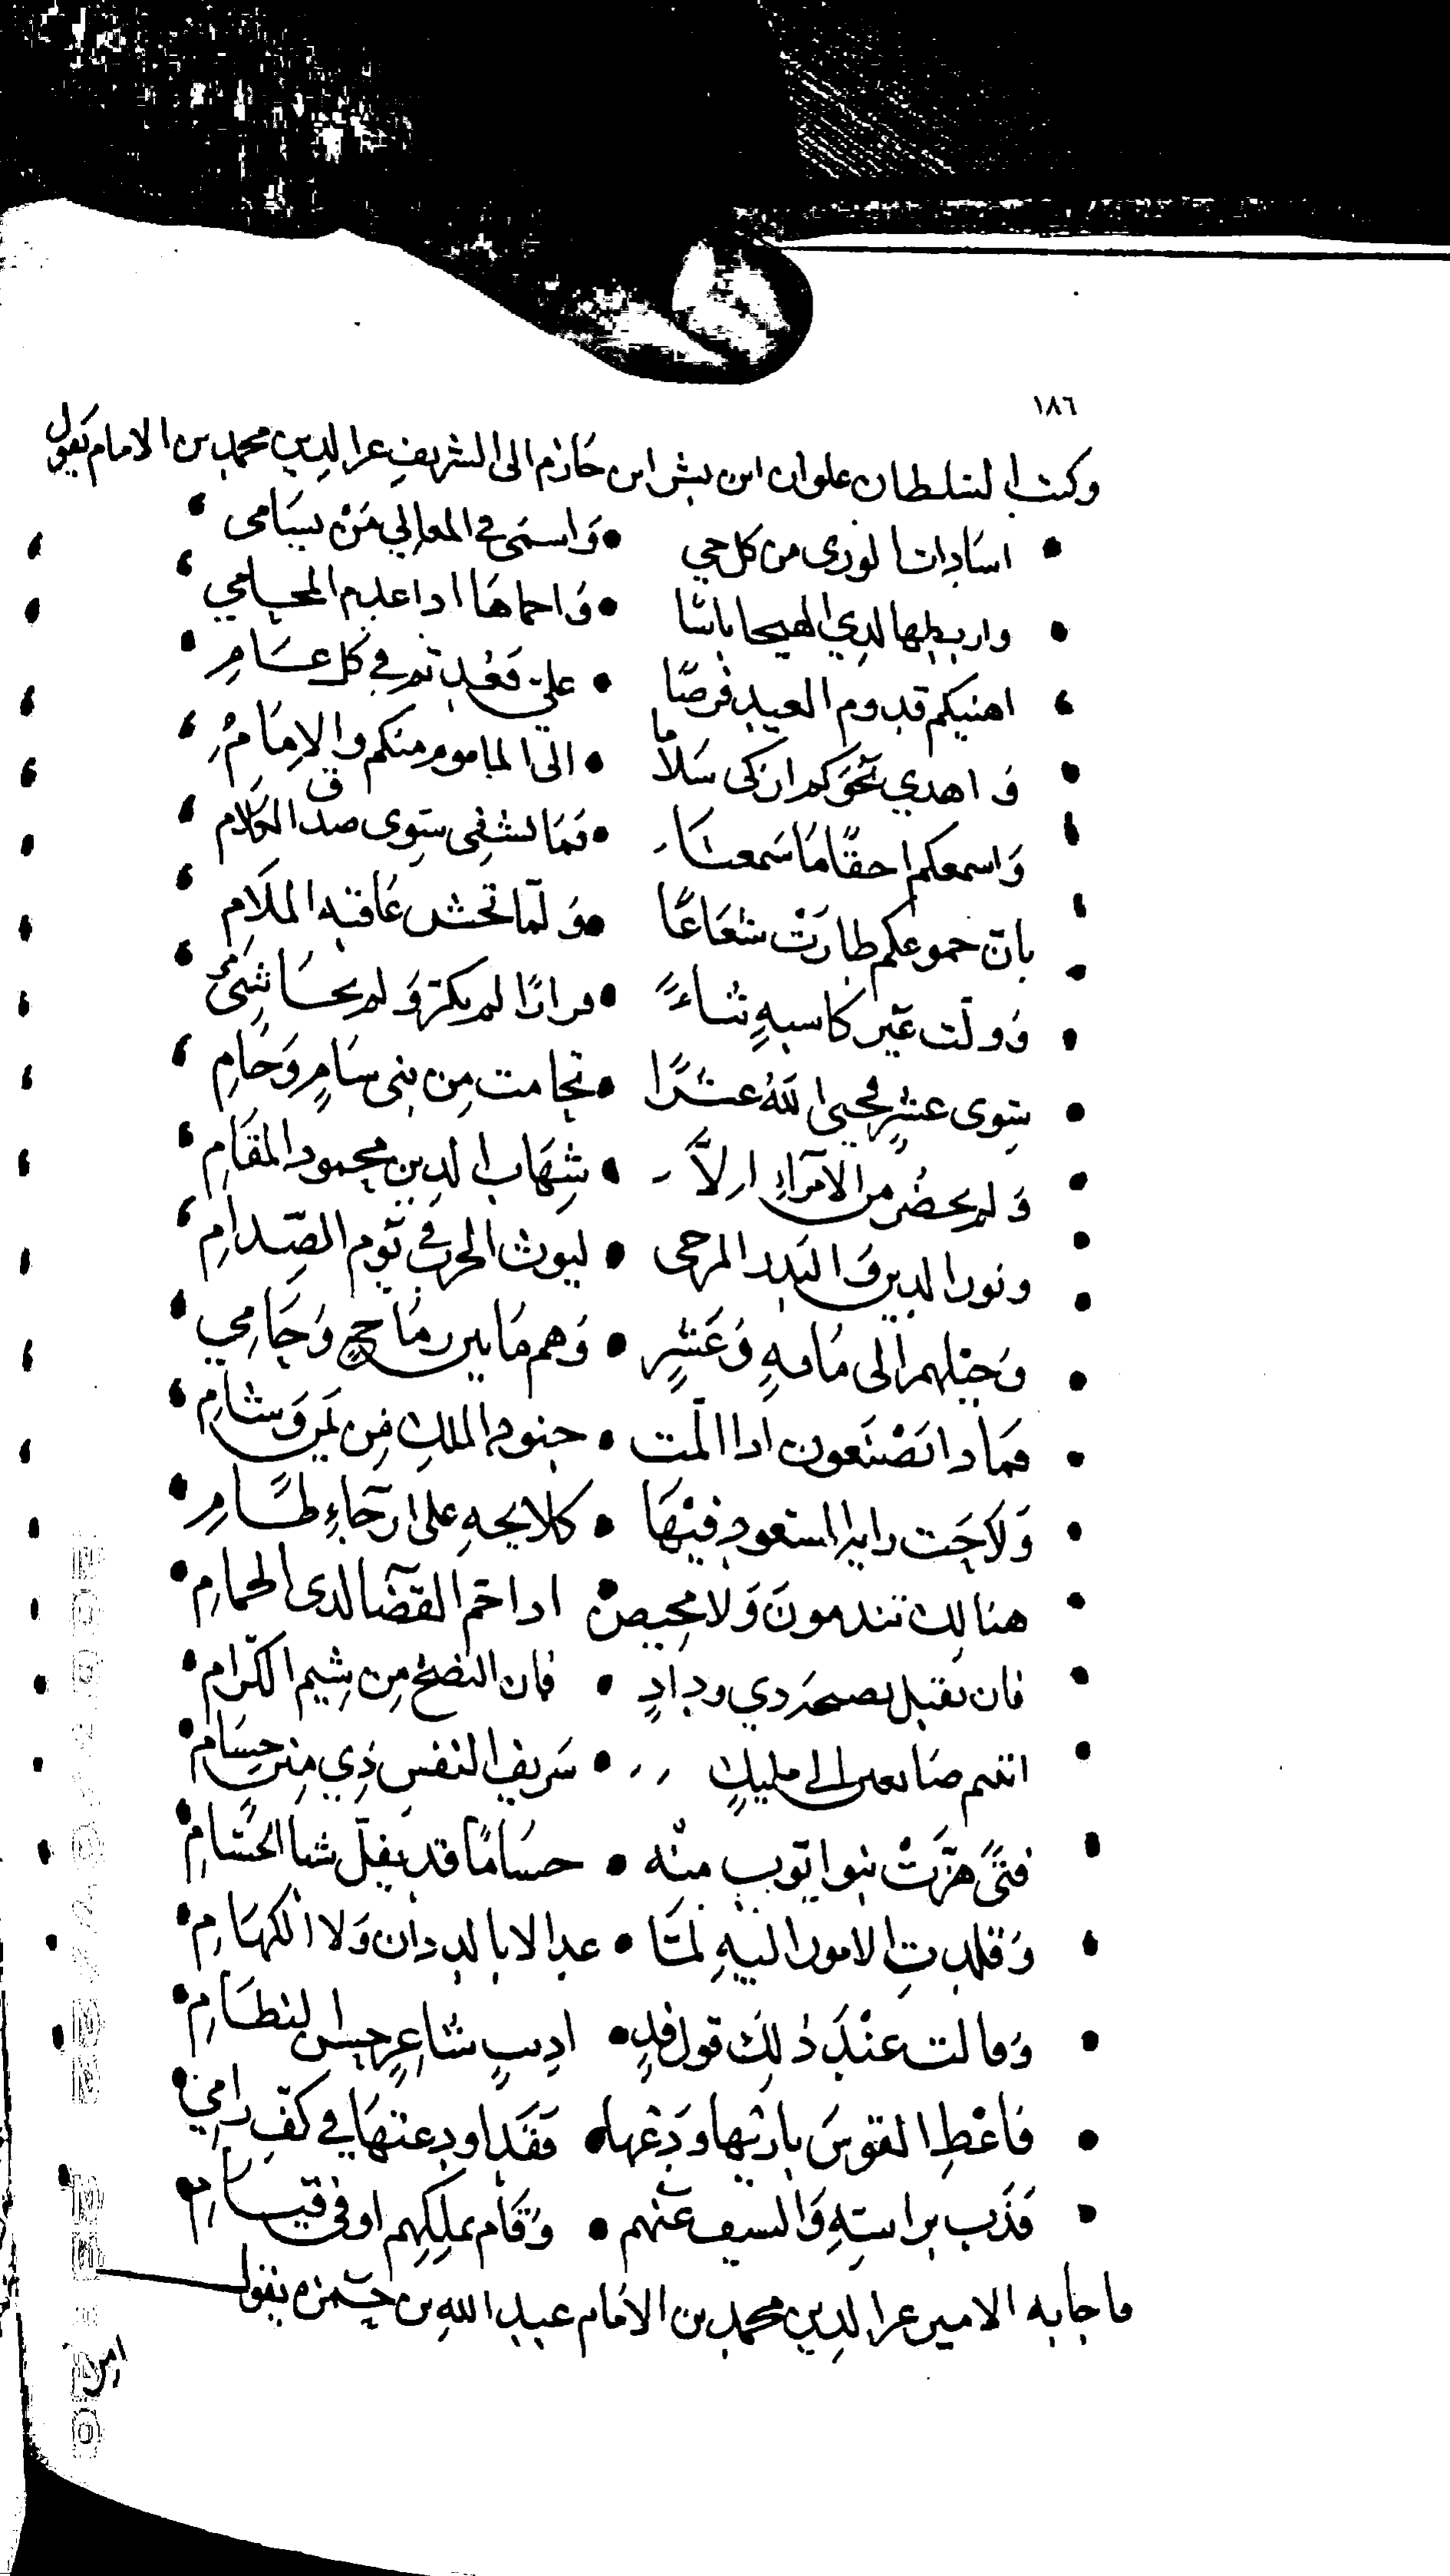 ١٨٦
وكتب السلطان علوان ابن بشر ابن حازم الى الشريف عز الدين محمد بن الامام يقول
اسادات الورى من كل حي • واسمى في المعالي من يسامى
واربطها لدى الهيجا باشا • واحماها اذا عدم المحامي
اهنيكم قدوم العيد فرضا • على بعد تم في كل عام
واهدي نحوكم ازكى سلاما • الى الماموم منكم والامام
واسمعكم احقا ما سمعنا • فما نشفى سوى صدق الكلام
بان جموعكم طارت شعاعا • ولما تخش عاقبه الملام
وولت غير كاسبه ثناء • فرارا لم يكر ولم يحامي
سوى عشر محيى الله عشرا • تحامت من بنى سام وحام
ولم يحضر من الامراء الا • شهاب الدين محمود المقام
ونور الدين والبدر المرجى • ليوث الحرب في يوم الصدام
وخيلهم الى مايه وعشر • وهم ما بين رماح وحامي
فماذا تصنعون اذا المت • جنود الملك من يمن وشام
ولاحت رايه السعود فيها • كلايحه على ارجاء طام
هنالك تندمون ولا محيص • اذا حم القضا لدى الحمام
فان تقبل نصيحة ذي وداد • فان النصح من شيم الكرام
انتم صانعين الى مليك • شريف النفس ذي منن جسام
فتى هزت بنوا يوب منه • حساما قد يفل شبا الحسام
وقلدت الامور اليه لما • غدا لا بالددان ولا الكهام
وقالت عند ذلك قول فد • اديب شاعر حسن النظام
فاعط القوس باريها ودعها • فقد اودعتها في كف رامي
فذب براسه والسيف عنهم • وقام بملكهم اوفى قيام
فاجابه الامير عز الدين محمد بن الامام عبد الله بن حمزه يقول
امن